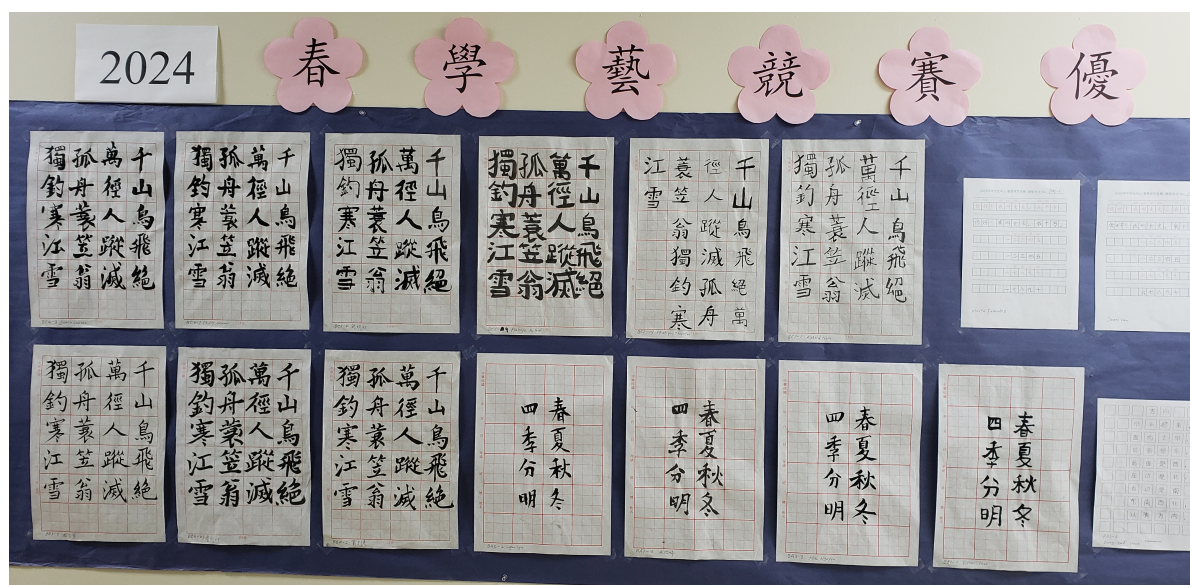 2024 春學藝競賽優
千山鳥飛絕
萬徑人蹤滅
孤舟蓑笠翁
獨釣寒江雪
千山鳥飛絕
萬徑人蹤滅
孤舟蓑笠翁
獨釣寒江雪
千山鳥飛絕
萬徑人蹤滅
孤舟蓑笠翁
獨釣寒江雪
千山鳥飛絕
萬徑人蹤滅
孤舟蓑笠翁
獨釣寒江雪
千山鳥飛絕萬
徑人蹤滅孤舟
蓑笠翁獨釣寒
江雪
千山鳥飛絕
萬徑人蹤滅
孤舟蓑笠翁
獨釣寒江雪
千山鳥飛絕
萬徑人蹤滅
孤舟蓑笠翁
獨釣寒江雪
千山鳥飛絕
萬徑人蹤滅
孤舟蓑笠翁
獨釣寒江雪
千山鳥飛絕
萬徑人蹤滅
孤舟蓑笠翁
獨釣寒江雪
春夏秋冬
四季分明
春夏秋冬
四季分明
春夏秋冬
四季分明
春夏秋冬
四季分明